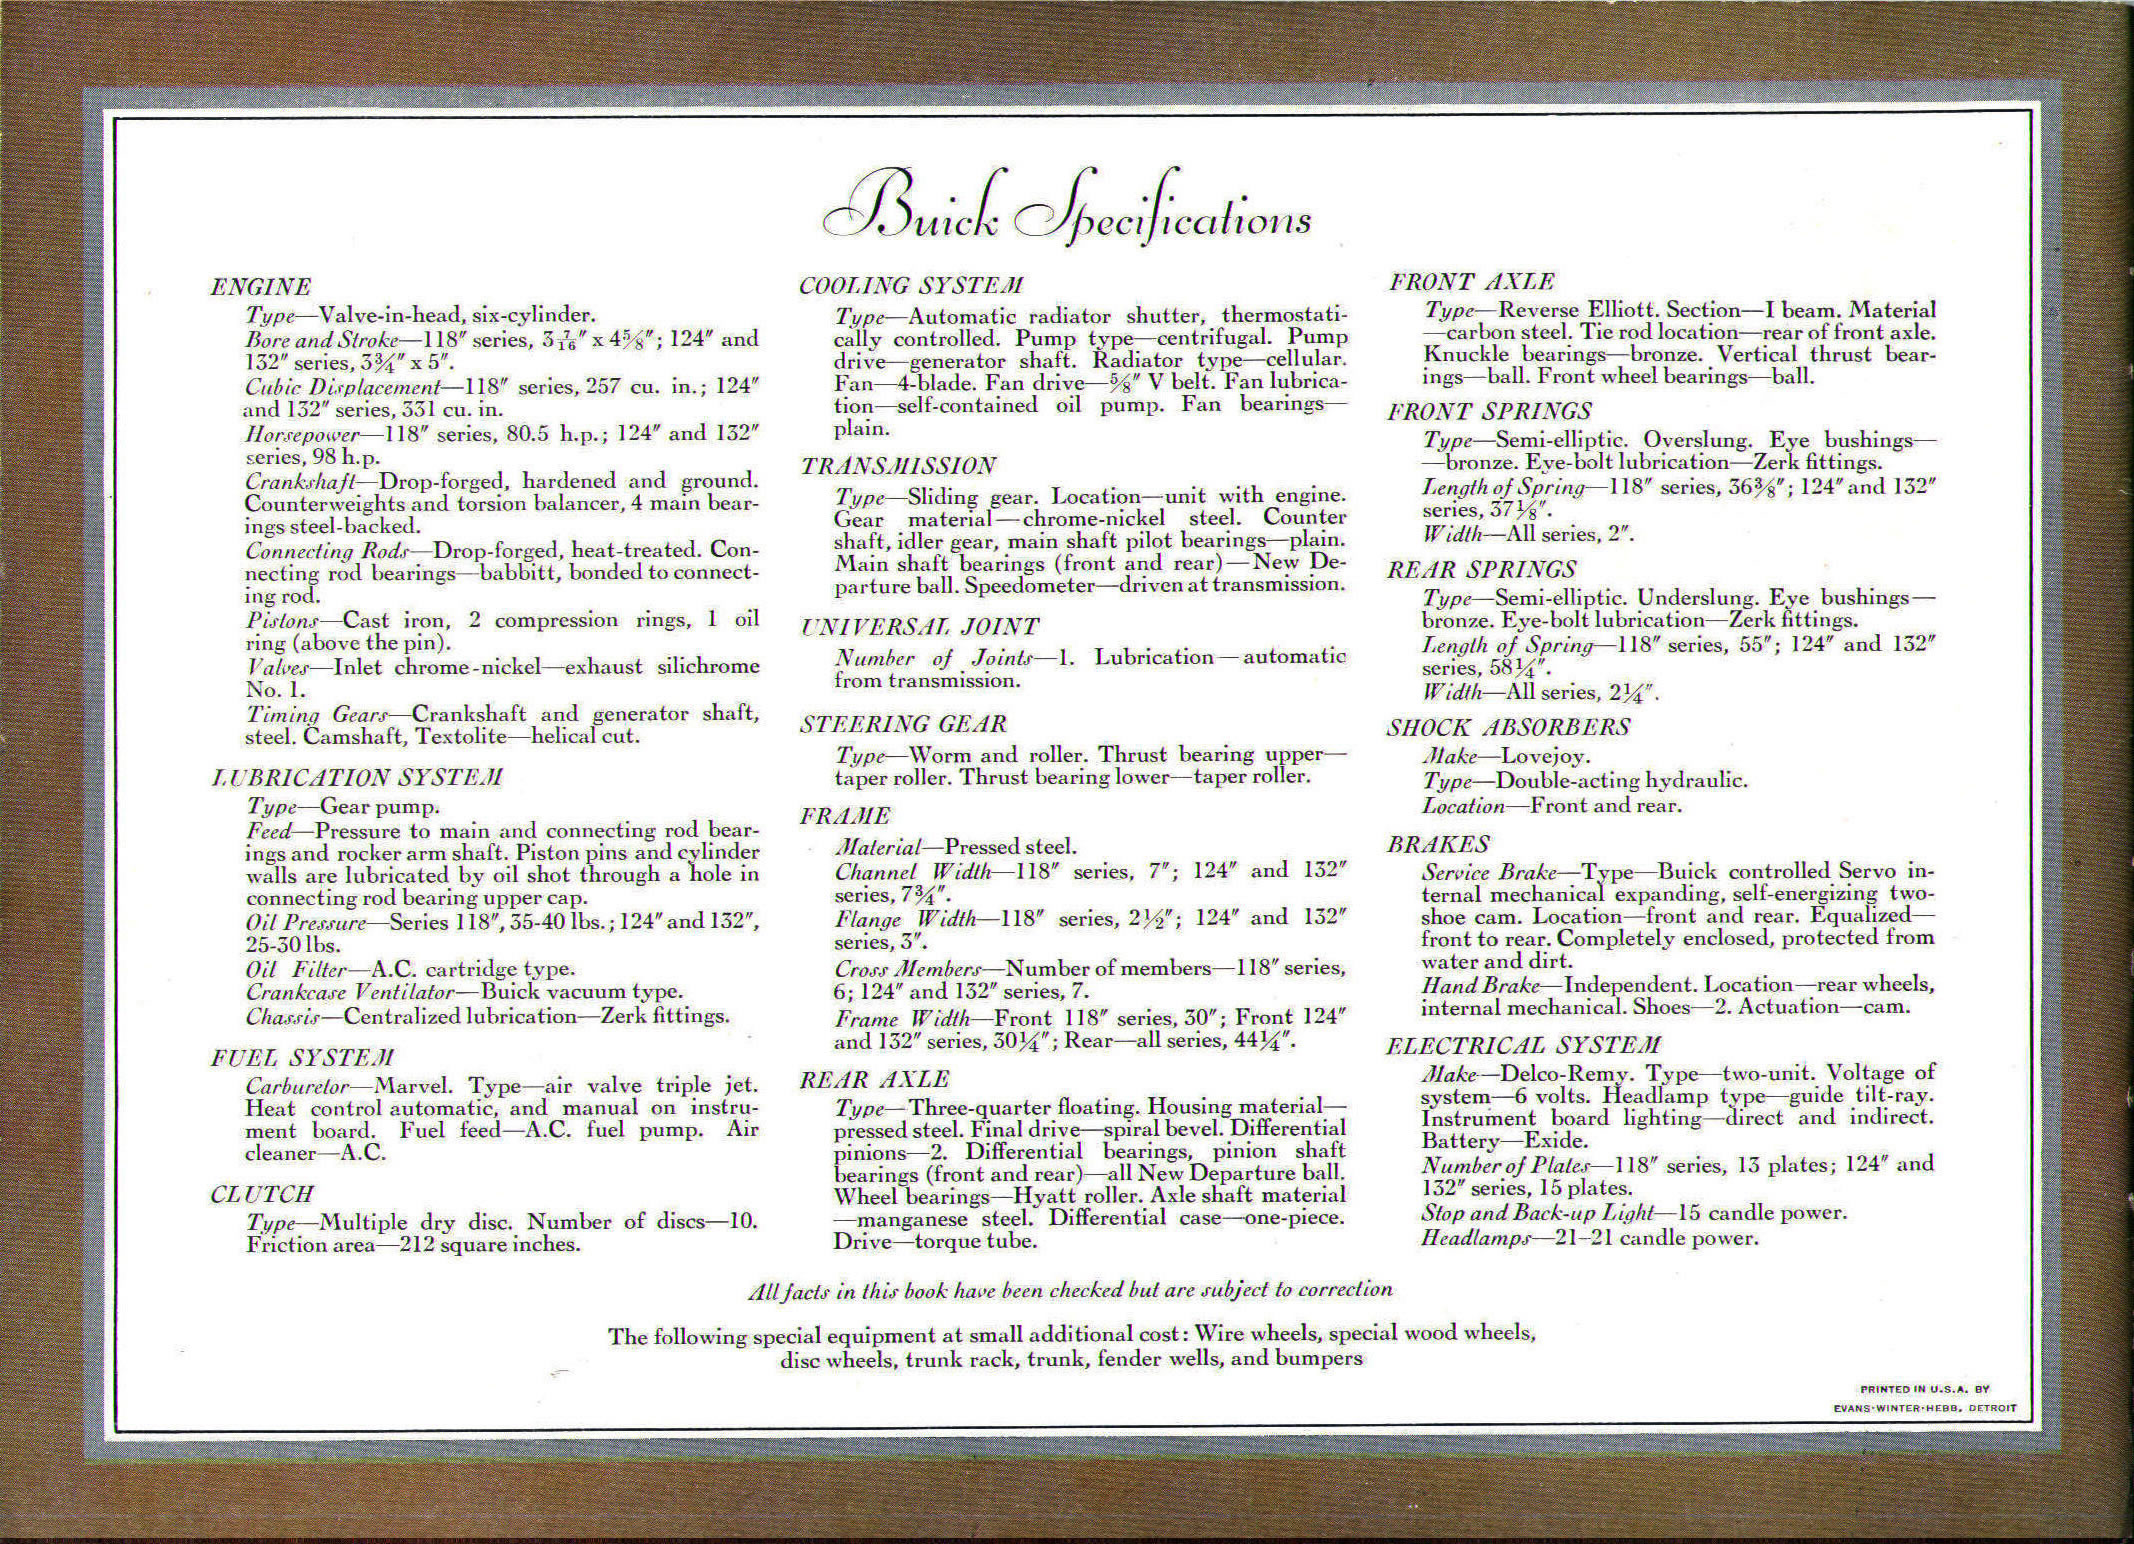 Buick Specifications
ENGINE
Type—Valve-in-head, six-cylinder.
Bore and Stroke—118″ series, 3 7/16″ x 4⅝″; 124″ and
132″ series, 3¾″ x 5″.
Cubic Displacement—118″ series, 257 cu. in.; 124″
and 132″ series, 331 cu. in.
Horsepower—118″ series, 80.5 h.p.; 124″ and 132″
series, 98 h.p.
Crankshaft—Drop-forged, hardened and ground.
Counterweights and torsion balancer, 4 main bear-
ings steel-backed.
Connecting Rods—Drop-forged, heat-treated. Con-
necting rod bearings—babbitt, bonded to connect-
ing rod.
Pistons—Cast iron, 2 compression rings, 1 oil
ring (above the pin).
Valves—Inlet chrome-nickel—exhaust silichrome
No. 1.
Timing Gears—Crankshaft and generator shaft,
steel. Camshaft, Textolite—helical cut.
LUBRICATION SYSTEM
Type—Gear pump.
Feed—Pressure to main and connecting rod bear-
ings and rocker arm shaft. Piston pins and cylinder
walls are lubricated by oil shot through a hole in
connecting rod bearing upper cap.
Oil Pressure—Series 118″, 35-40 lbs.; 124″ and 132″,
25-30 lbs.
Oil Filter—A.C. cartridge type.
Crankcase Ventilator—Buick vacuum type.
Chassis—Centralized lubrication—Zerk fittings.
FUEL SYSTEM
Carburetor—Marvel. Type—air valve triple jet.
Heat control automatic, and manual on instru-
ment board. Fuel feed—A.C. fuel pump. Air
cleaner—A.C.
CLUTCH
Type—Multiple dry disc. Number of discs—10.
Friction area—212 square inches.
COOLING SYSTEM
Type—Automatic radiator shutter, thermostati-
cally controlled. Pump type—centrifugal. Pump
drive—generator shaft. Radiator type—cellular.
Fan—4-blade. Fan drive—⅝″ V belt. Fan lubrica-
tion—self-contained oil pump. Fan bearings—
plain.
TRANSMISSION
Type—Sliding gear. Location—unit with engine.
Gear material—chrome-nickel steel. Counter
shaft, idler gear, main shaft pilot bearings—plain.
Main shaft bearings (front and rear)—New De-
parture ball. Speedometer—driven at transmission.
UNIVERSAL JOINT
Number of Joints—1. Lubrication—automatic
from transmission.
STEERING GEAR
Type—Worm and roller. Thrust bearing upper—
taper roller. Thrust bearing lower—taper roller.
FRAME
Material—Pressed steel.
Channel Width—118″ series, 7″; 124″ and 132″
series, 7¾″.
Flange Width—118″ series, 2½″; 124″ and 132″
series, 3″.
Cross Members—Number of members—118″ series,
6; 124″ and 132″ series, 7.
Frame Width—Front 118″ series, 30″; Front 124″
and 132″ series, 30¼″; Rear—all series, 44¼″.
REAR AXLE
Type—Three-quarter floating. Housing material—
pressed steel. Final drive—spiral bevel. Differential
pinions—2. Differential bearings, pinion shaft
bearings (front and rear)—all New Departure ball.
Wheel bearings—Hyatt roller. Axle shaft material
—manganese steel. Differential case—one-piece.
Drive—torque tube.
FRONT AXLE
Type—Reverse Elliott. Section—I beam. Material
—carbon steel. Tie rod location—rear of front axle.
Knuckle bearings—bronze. Vertical thrust bear-
ings—ball. Front wheel bearings—ball.
FRONT SPRINGS
Type—Semi-elliptic. Overslung. Eye bushings—
—bronze. Eye-bolt lubrication—Zerk fittings.
Length of Spring—118″ series, 36⅜″; 124″ and 132″
series, 37⅛″.
Width—All series, 2″.
REAR SPRINGS
Type—Semi-elliptic. Underslung. Eye bushings—
bronze. Eye-bolt lubrication—Zerk fittings.
Length of Spring—118″ series, 55″; 124″ and 132″
series, 58¼″.
Width—All series, 2¼″.
SHOCK ABSORBERS
Make—Lovejoy.
Type—Double-acting hydraulic.
Location—Front and rear.
BRAKES
Service Brake—Type—Buick controlled Servo in-
ternal mechanical expanding, self-energizing two-
shoe cam. Location—front and rear. Equalized—
front to rear. Completely enclosed, protected from
water and dirt.
Hand Brake—Independent. Location—rear wheels,
internal mechanical. Shoes—2. Actuation—cam.
ELECTRICAL SYSTEM
Make—Delco-Remy. Type—two-unit. Voltage of
system—6 volts. Headlamp type—guide tilt-ray.
Instrument board lighting—direct and indirect.
Battery—Exide.
Number of Plates—118″ series, 13 plates; 124″ and
132″ series, 15 plates.
Stop and Back-up Light—15 candle power.
Headlamps—21-21 candle power.
All facts in this book have been checked but are subject to correction
The following special equipment at small additional cost: Wire wheels, special wood wheels,
disc wheels, trunk rack, trunk, fender wells, and bumpers
PRINTED IN U.S.A. BY
EVANS-WINTER-HEBB, DETROIT